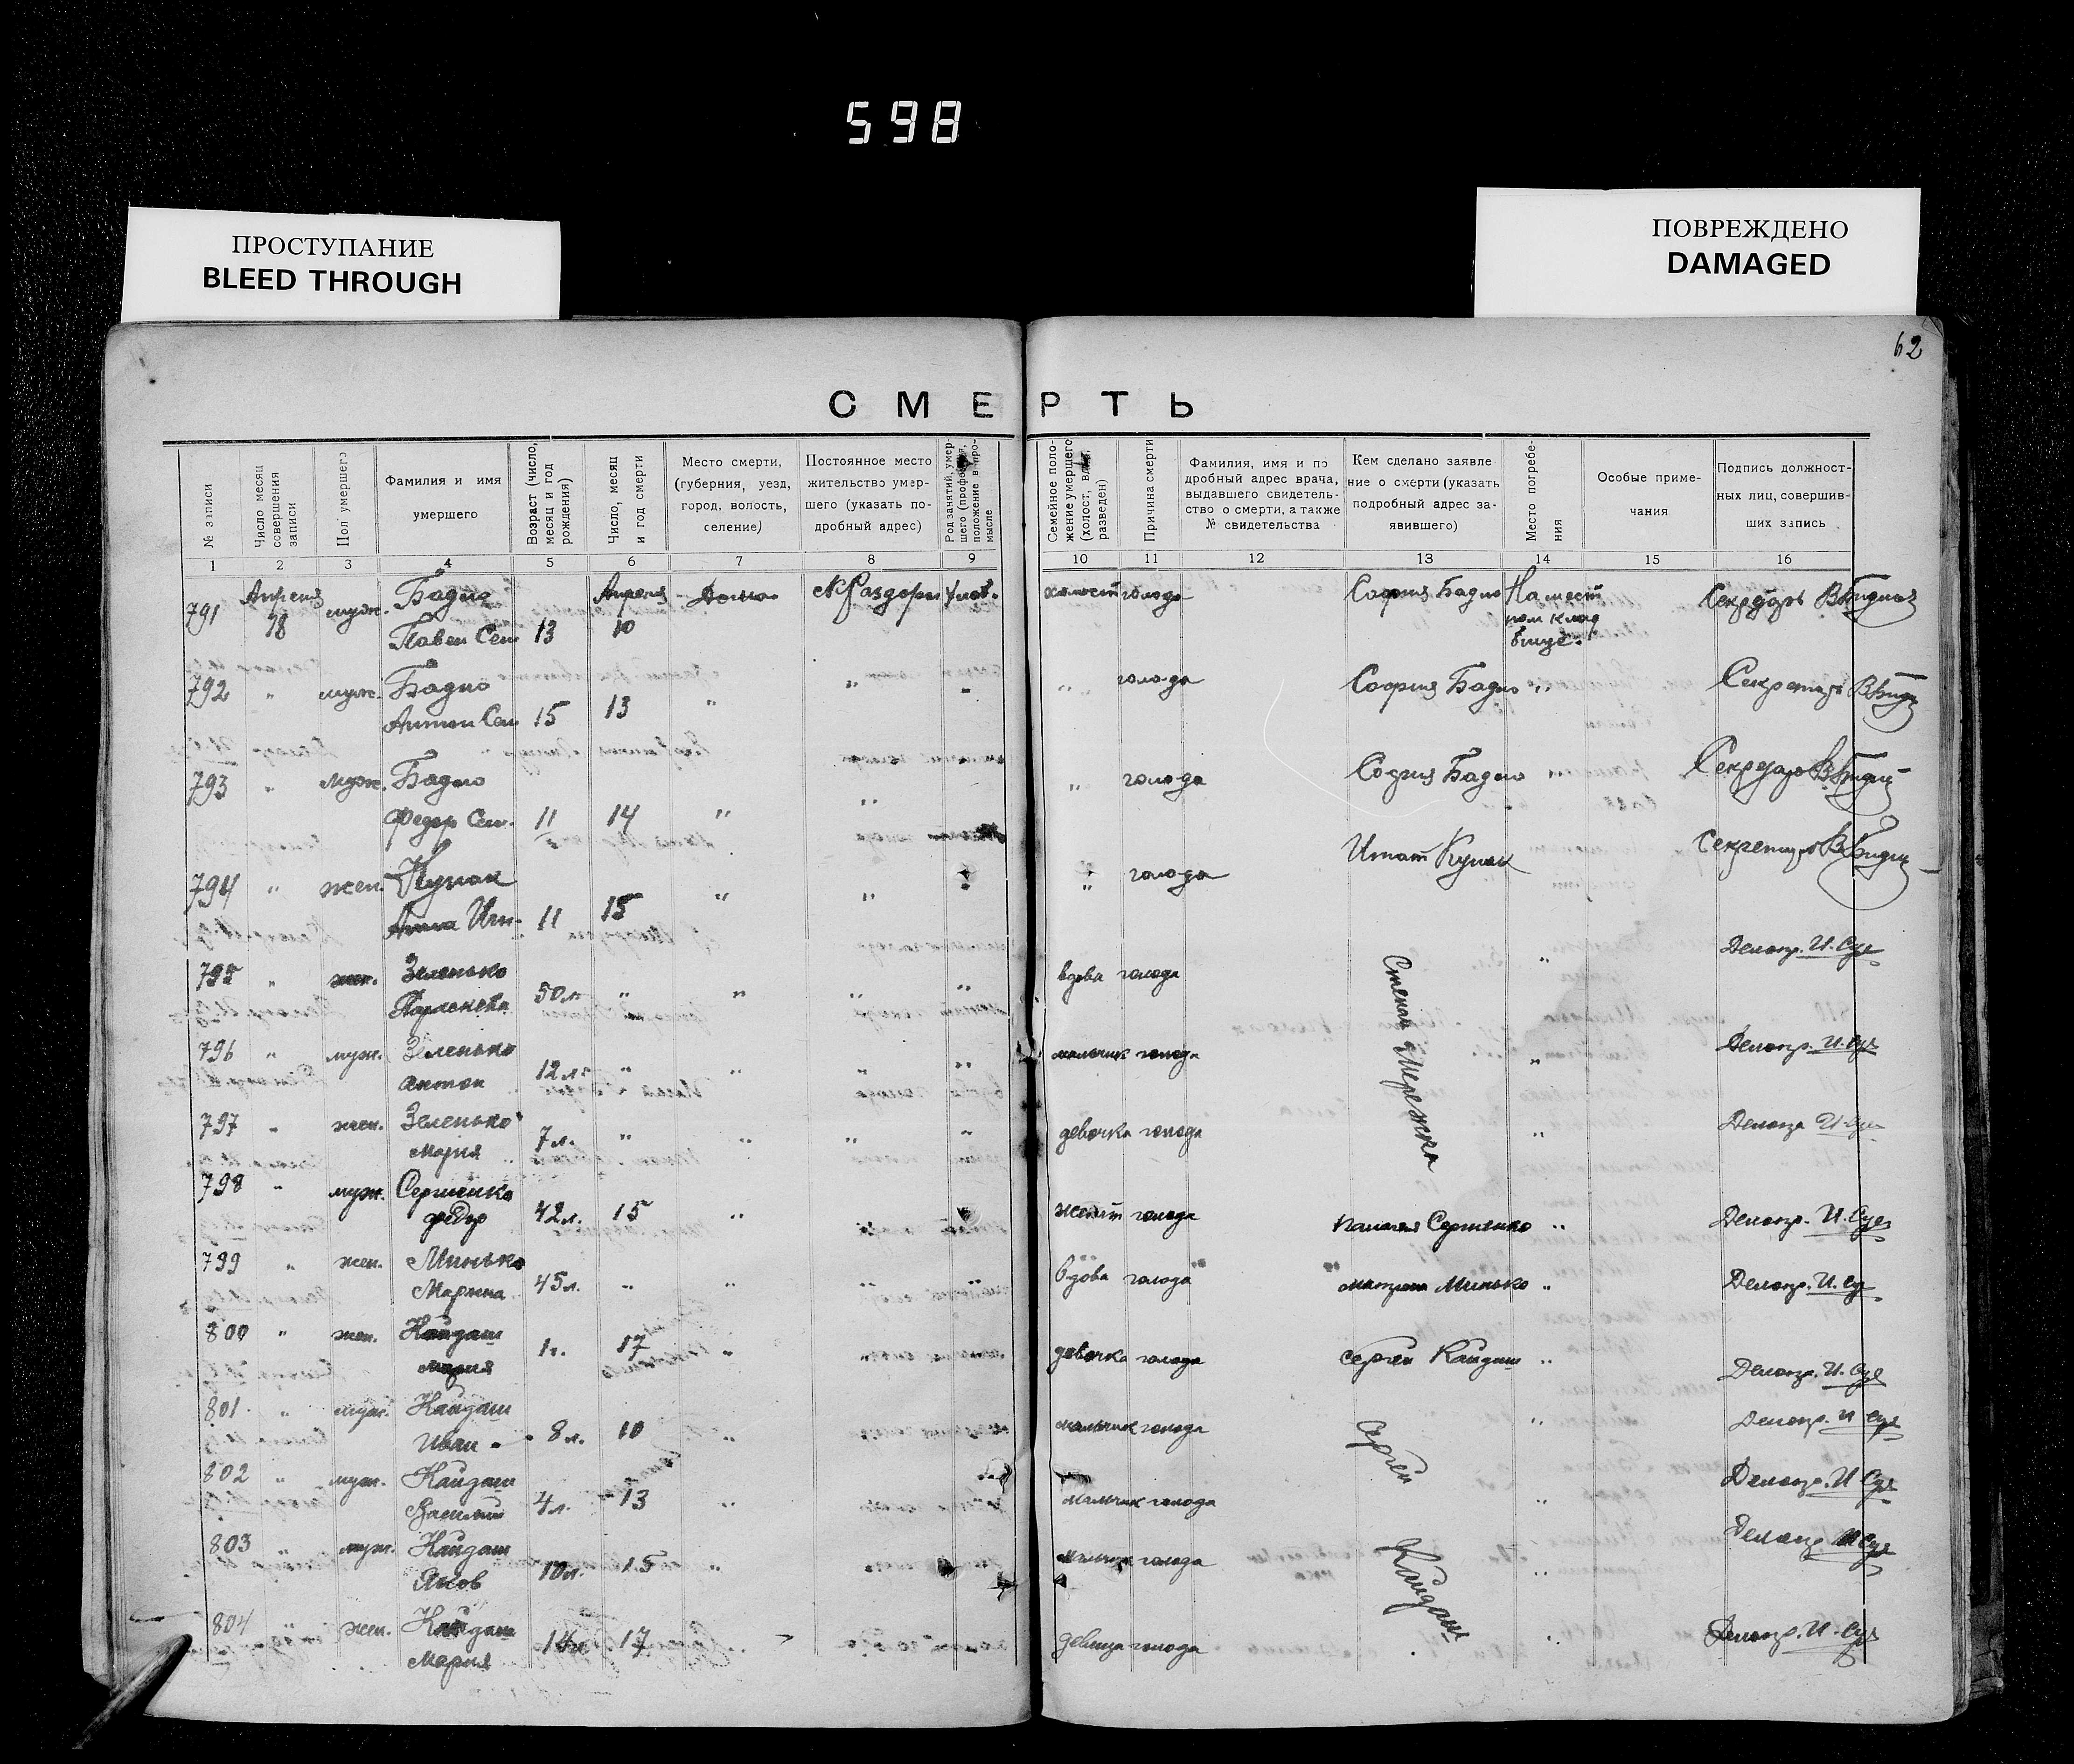 598
ПРОСТУПАНИЕ
BLEED THROUGH
ПОВРЕЖДЕНО
DAMAGED
62
СМЕРТЬ
№ записи
Число месяц совершения записи
Пол умершего
Фамилия и имя умершего
Возраст (число, месяц и год рождения)
Число, месяц и год смерти
Место смерти, (губерния, уезд, город, волость, селение)
Постоянное место жительство умершего (указать подробный адрес)
Род занятий, умершего (профессия, положение в промысле
Семейное положение умершего (холост, вдов, разведен)
Причина смерти
Фамилия, имя и по дробный адрес врача, выдавшего свидетельство о смерти, а также № свидетельства
Кем сделано заявление о смерти (указать подробный адрес заявившего)
Место погребения
Особые примечания
Подпись должностных лиц, совершивших запись
1 2 3 4 5 6 7 8 9 10 11 12 13 14 15 16
791 Апреля 18 муж. Бадно Павел Сем 13 Апреля 10 Дома холост голода София Бадно На мест ном клад бище. Секретарь
792 " муж. Бадно Антон Сем 15 13 " " " голода София Бадно " Секретарь
793 " муж. Бадно Федор Сем. 11 14 " " " голода София Бадно " Секретарь
794 " жен. Кулак Анна Игн. 11 15 " " " " голода Игнат Кулак Секретарь
795 " жен. Зеленько 50 л. " " " " вдова голода Степан Мережка " Делопр. И. Суд
796 " муж. Зеленько Антон 12 л. " " " " мальчик голода " Делопр. И. Суд
797 " жен. Зеленько Мария 7 л. " " " " девочка голода " Делопр И. Суд
798 " муж. Сергиенко Федор 42 л. 15 " " " женат голода Сергиенко " Делопр. И. Суд
799 " жен. Минько Марина 45 л. " " " " вдова голода Минько " Делопр. И. Суд
800 " жен. Кайдаш Мария 1 г. 17 " " девочка голода Сергей Кайдаш " Делопр. И. Суд
801 " муж. Кайдаш Иван 8 л. 10 " мальчик голода Сергей Кайдаш " Делопр. И Суд
802 " муж. Кайдаш Василий 4 л. 13 " мальчик голода " Делопр. И Суд
803 " муж. Кайдаш Яков 10 л. 15 " мальчик голода " Делопр И Суд
804 " жен. Кайдаш Мария 17 девица голода " Делопр. И. Суд